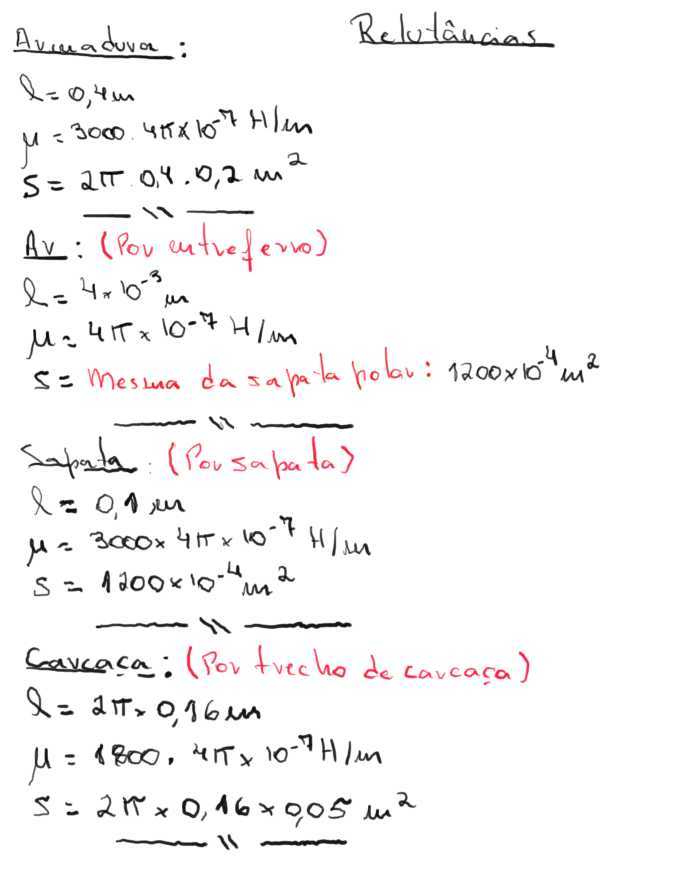 Relutâncias
Armadura:
l = 0,4 m
μ = 3000 . 4π×10⁻⁷ H/m
S = 2π . 0,4 . 0,2 m²
— \\ —
Ar: (Por entreferro)
l = 4×10⁻³ m
μ = 4π×10⁻⁷ H/m
S = Mesma da sapata polar: 1200×10⁻⁴ m²
— \\ —
Sapata: (Por sapata)
l = 0,1 m
μ = 3000×4π×10⁻⁷ H/m
S = 1200×10⁻⁴ m²
— \\ —
Carcaça: (Por trecho de carcaça)
l = 2π×0,16 m
μ = 1800 . 4π×10⁻⁷ H/m
S = 2π×0,16×0,05 m²
— \\ —